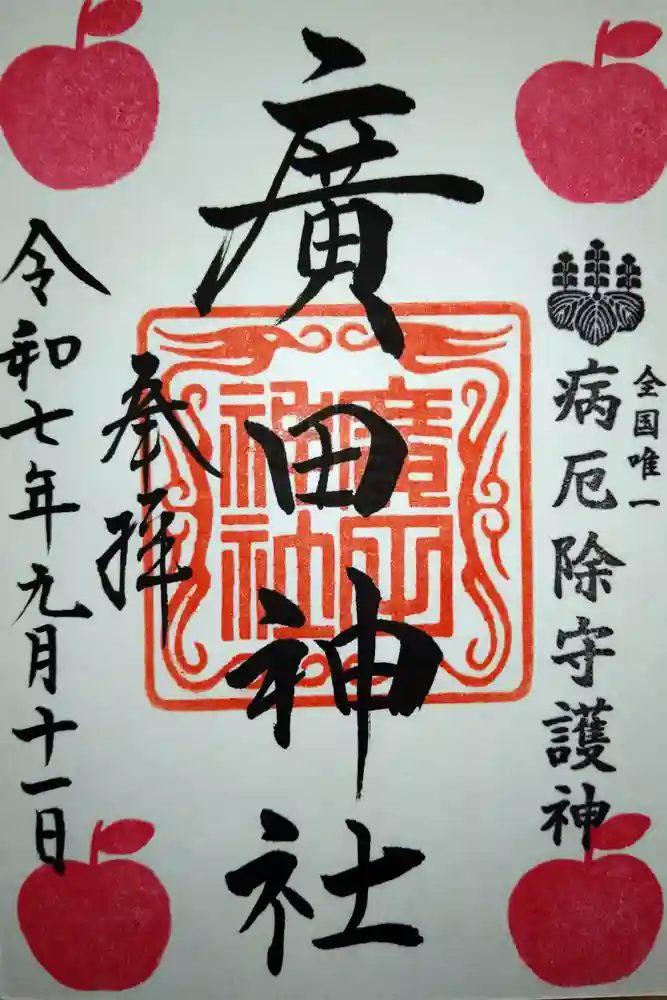 全国唯一
病厄除守護神
廣田神社
廣田
神社
奉拝
令和七年九月十一日